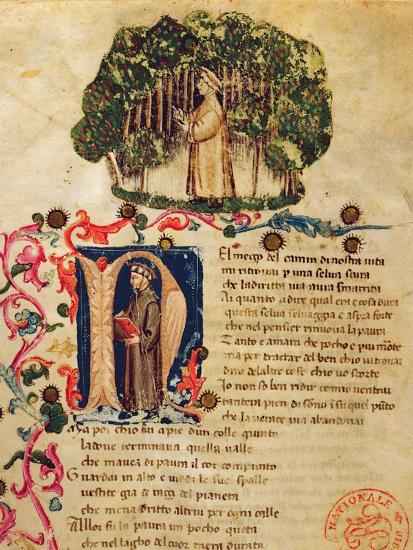 N El mezo del camin di nostra uita
mi ritrouai p una selua scura
che la diritta uia aura smarrita
Ai quanto adire qual era e cosa dura
questa selua seluaggia e aspra e forte
che nel pensier rinoua la paura
Tanto e amara che pocho e piu morte
ma per tractar del ben chio ui trouai
diro dellaltre cose chio uo scorte
Jo non so ben ridir comio uentrai
tantera pien di sonno i su quel puto
che la uerace uia abandonai
Ma poi chio fui a pie dun colle giunto
ladoue terminaua quella ualle
che mauea di paura il cor compunto
Guardai in alto e uidi le sue spalle
uestite gia de raggi del pianeta
che mena dritto altrui per ogni calle
Allor fu la paura un pocho queta
che nel lagho del cuor mera durata
NATIONALE